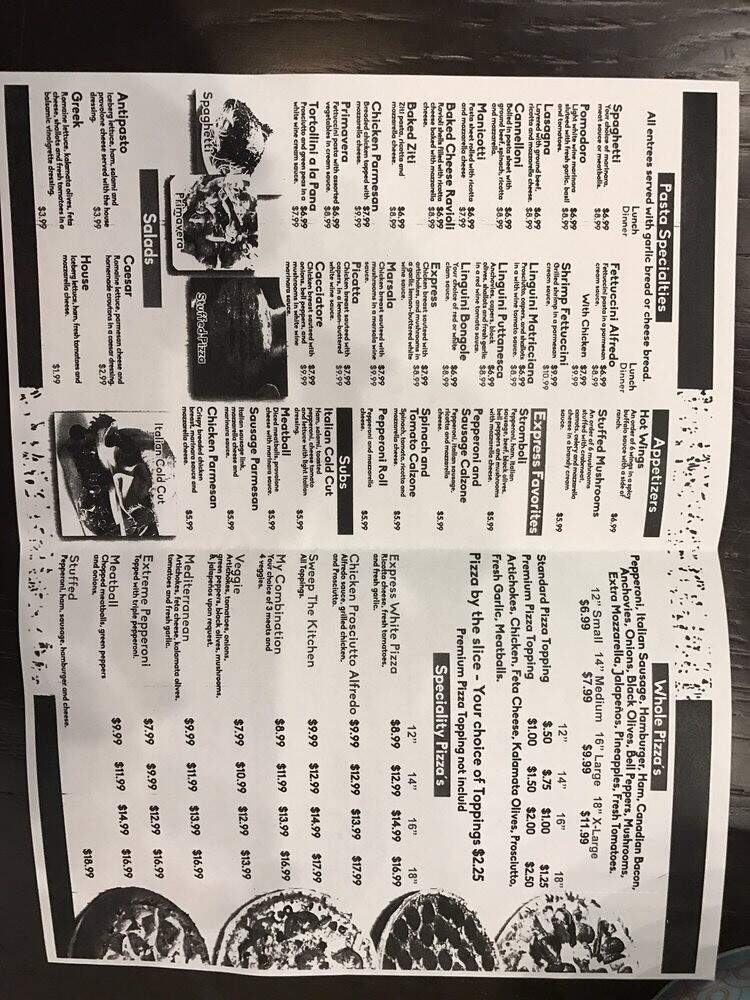 Pasta Specialties
All entrees served with garlic bread or cheese bread.
Lunch
Dinner
Spaghetti $6.99
Your choice of marinara, $8.99
meat sauce or meatballs.
Pomodoro $6.99
Linguini with marinara $8.99
sauce with fresh garlic, basil
and tomatoes.
Lasagna $6.99
Layered with ground beef, $8.99
ricotta and mozzarella cheese.
Cannelloni $6.99
Rolled pasta sheet with
ground beef, spinach, ricotta $8.99
and mozzarella.
Manicotti $6.99
Pasta sheet rolled with ricotta
and mozzarella cheese. $7.99
Baked Cheese Ravioli
Ravioli shells filled with ricotta $6.99
cheese baked with mozzarella $8.99
cheese.
Baked Ziti $6.99
Ziti pasta, ricotta and $8.99
mozzarella cheese.
Chicken Parmesan
Breaded chicken topped with $7.99
mozzarella cheese. $9.99
Primavera
Fettuccini pasta with assorted $6.99
vegetables in cream sauce. $8.99
Tortollini a la Pana
Prosciutto and green peas in a $6.99
white wine cream sauce. $7.99
Spaghetti
Primavera
Stuffed Pizza
Lunch
Dinner
Fettuccini Alfredo
Fettuccini pasta in a parmesan $6.99
cream sauce. $8.99
With Chicken $7.99
$9.99
Shrimp Fettuccini
Grilled shrimp in a parmesan $9.99
cream sauce. $10.99
Linguini Matricciana
Prosciutto, capers, and shallots $6.99
in a with wine tomato sauce. $8.99
Linguini Puttanesca
Anchovies, capers, black $6.99
olives, shallots and fresh garlic $8.99
in red wine tomato sauce.
Linguini Bongole
Your choice of red or white $6.99
clam sauce. $8.99
Express
Chicken breast sauteed with $7.99
artichokes, and mushrooms in $8.99
a garlic lemon-buttered white
wine sauce.
Marsala
Chicken breast sauteed with $7.99
mushrooms in a marsala wine $9.99
sauce.
Picatta
Chicken breast sauteed with $7.99
capers, in a lemon-buttered $9.99
white wine sauce.
Cacciatore
Chicken breast sauteed with $7.99
onions, bell peppers, and $9.99
mushrooms in white wine
marinara sauce.
Salads
Antipasto
Iceberg lettuce, ham, salami and
provalone cheese served with the house
dressing. $3.99
Greek
Romaine lettuce, kalamata olives, feta
cheese, shallots and fresh tomatoes in a
balsamic vinaigrette dressing. $3.99
Caesar
Romaine lettuce, parmesan cheese and
homemade croutons in a caesar dressing.
$2.99
House
Iceberg lettuce, ham, fresh tomatoes and
mozzarella cheese. $1.99
Appetizers
Hot Wings
An order of 6 wings in a spicy
buffalo sauce with a side of
ranch. $6.99
Stuffed Mushrooms
An order of 6 mushrooms
stuffed with crabmeat,
carrots, celery and mozzarella
cheese in a brandy cream
sauce. $5.99
Express Favorites
Stromboli
Pepperoni, ham, Italian
sausage, beef, black olives,
bell peppers and mushrooms
with mozzarella cheese. $5.99
Pepperoni and
Sausage Calzone
Pepperoni, Italian sausage,
ricotta and mozzarella
cheese. $5.99
Spinach and
Tomato Calzone
Spinach, tomato, ricotta and
mozzarella cheese. $5.99
Pepperoni Roll
Pepperoni and mozzarella
cheese. $5.99
Subs
Italian Cold Cut
Ham, salami, toasted
provalone cheese, tomato
and lettuce with light Italian
dressing. $5.99
Meatball
Diced meatballs, provalone
cheese with marinara sauce. $5.99
Sausage Parmesan
Italian sausage link,
mozzarella cheese and
marinara sauce. $5.99
Chicken Parmesan
Crispy breaded chicken
breast, marinara sauce and
mozzarella cheese. $5.99
Italian Cold Cut
Whole Pizza's
Pepperoni, Italian Sausage, Hamburger, Ham, Canadian Bacon,
Anchovies, Onions, Black Olives, Bell Peppers, Mushrooms,
Extra Mozzarella, Jalapeños, Pineapples, Fresh Tomatoes.
12" Small 14" Medium 16" Large 18" X-Large
$6.99 $7.99 $9.99 $11.99
12" 14" 16" 18"
Standard Pizza Topping $.50 $.75 $1.00 $1.25
Premium Pizza Topping $1.00 $1.50 $2.00 $2.50
Artichokes, Chicken, Feta Cheese, Kalamata Olives, Prosciutto,
Fresh Garlic, Meatballs.
Pizza by the slice - Your choice of Toppings $2.25
Premium Pizza Topping not includ
Speciality Pizza's
12" 14" 16" 18"
Express White Pizza $8.99 $12.99 $14.99 $16.99
Ricotta cheese, fresh tomatoes,
and fresh garlic.
Chicken Prosciutto Alfredo $9.99 $12.99 $13.99 $17.99
Alfredo sauce, grilled chicken,
and Prosciutto.
Sweep The Kitchen $9.99 $12.99 $14.99 $17.99
All Toppings.
My Combination $8.99 $11.99 $13.99 $16.99
Your choice of 3 meats and
4 veggies.
Veggie $7.99 $10.99 $12.99 $13.99
Artichokes, tomatoes, onions,
green peppers, black olives, mushrooms,
& jalapeños upon request.
Mediterranean $9.99 $11.99 $13.99 $16.99
Artichokes, feta cheese, kalamata olives,
tomatoes and fresh garlic.
Extreme Pepperoni $7.99 $9.99 $12.99 $16.99
Topped with triple pepperoni.
Meatball $9.99 $11.99 $14.99 $16.99
Chopped meatballs, green peppers
and onions.
Stuffed $18.99
Pepperoni, ham, sausage, hamburger and cheese.